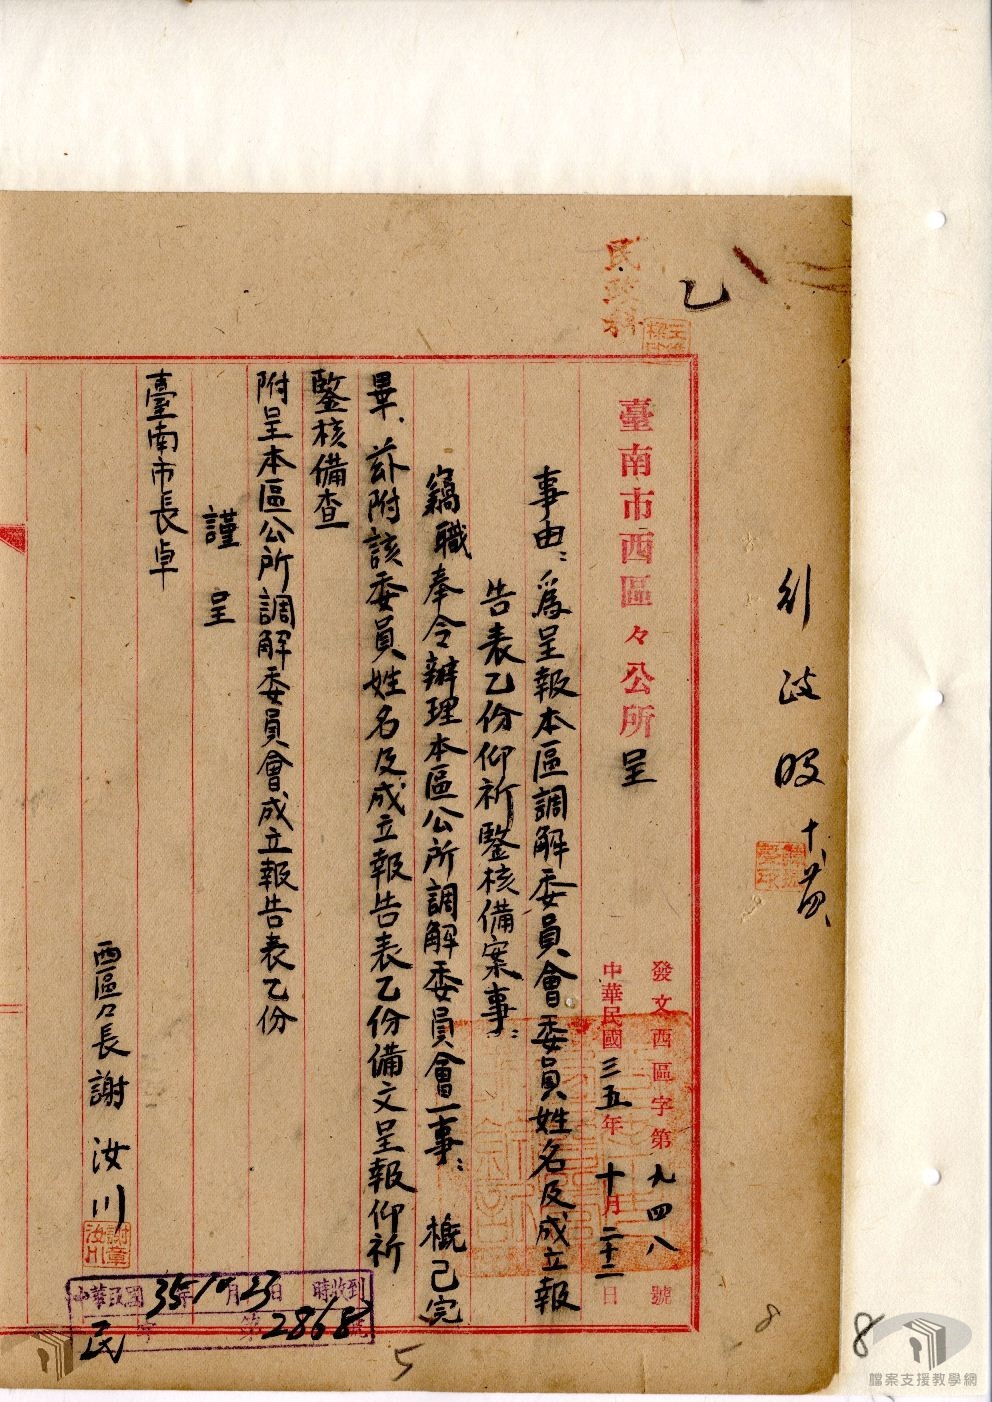 乙
民政科
臺南市西區々公所呈
發文西區字第九四八號
中華民國三五年十月二十二日
事由:為呈報本區調解委員會委員姓名及成立報
告表乙份仰祈鑒核備案事:
竊職奉令辦理本區公所調解委員會一事:概已完
畢、茲附該委員姓名及成立報告表乙份備文呈報仰祈
鑒核備查
附呈本區公所調解委員會成立報告表乙份
謹呈
臺南市長卓
西區々長謝汝川
謝汝川章
中華民國35年10月23日時收到
民字第2868號
5
8
8
檔案支援教學網